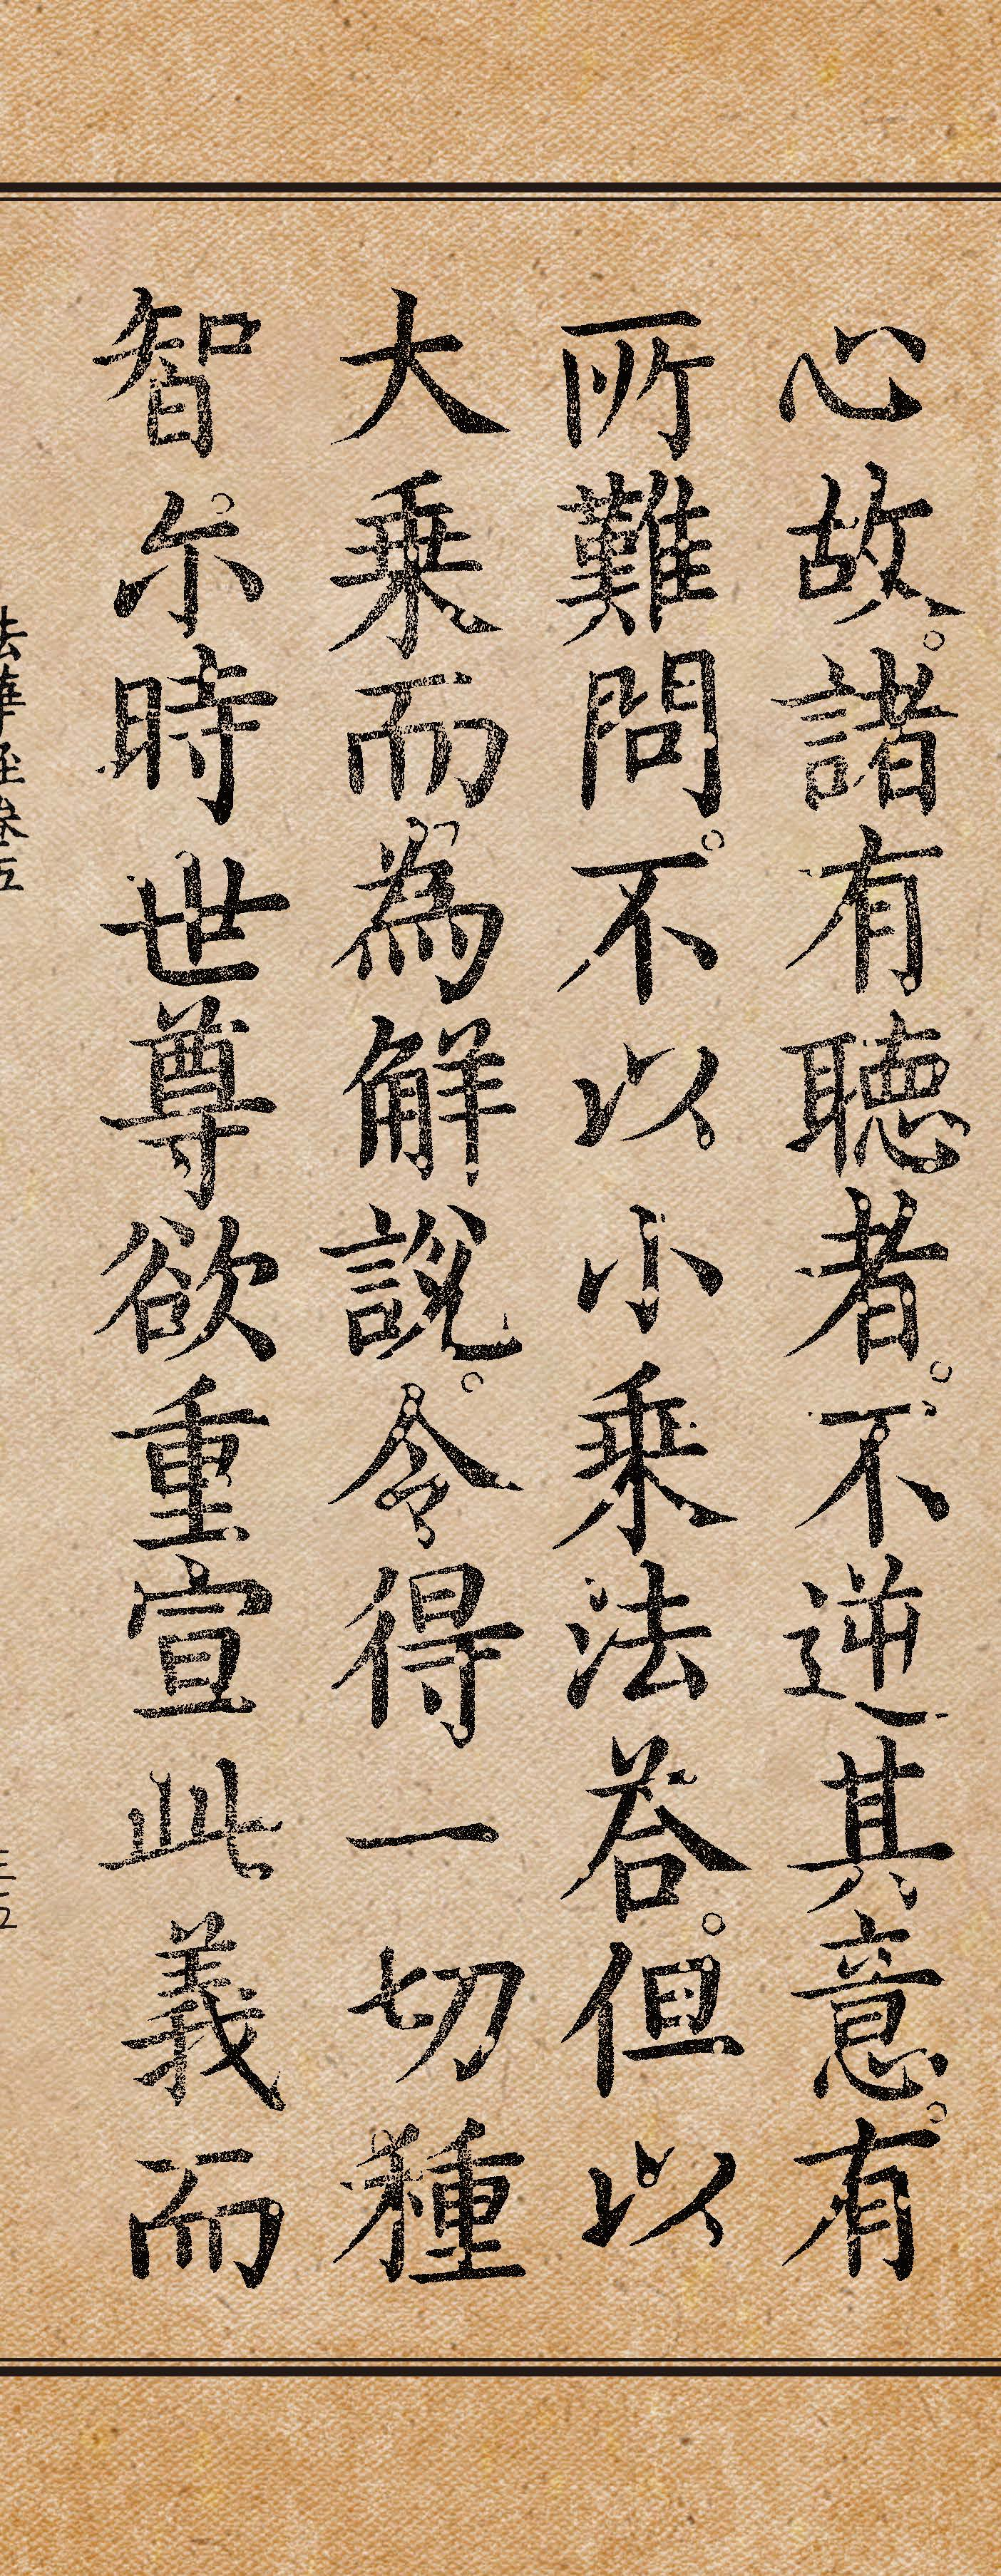 心故。諸有聴者。不逆其意。有
所難問。不以小乗法荅。但以
大乗而為解說。令得一切種
智。尒時世尊欲重宣此義而
法華経卷五
三五